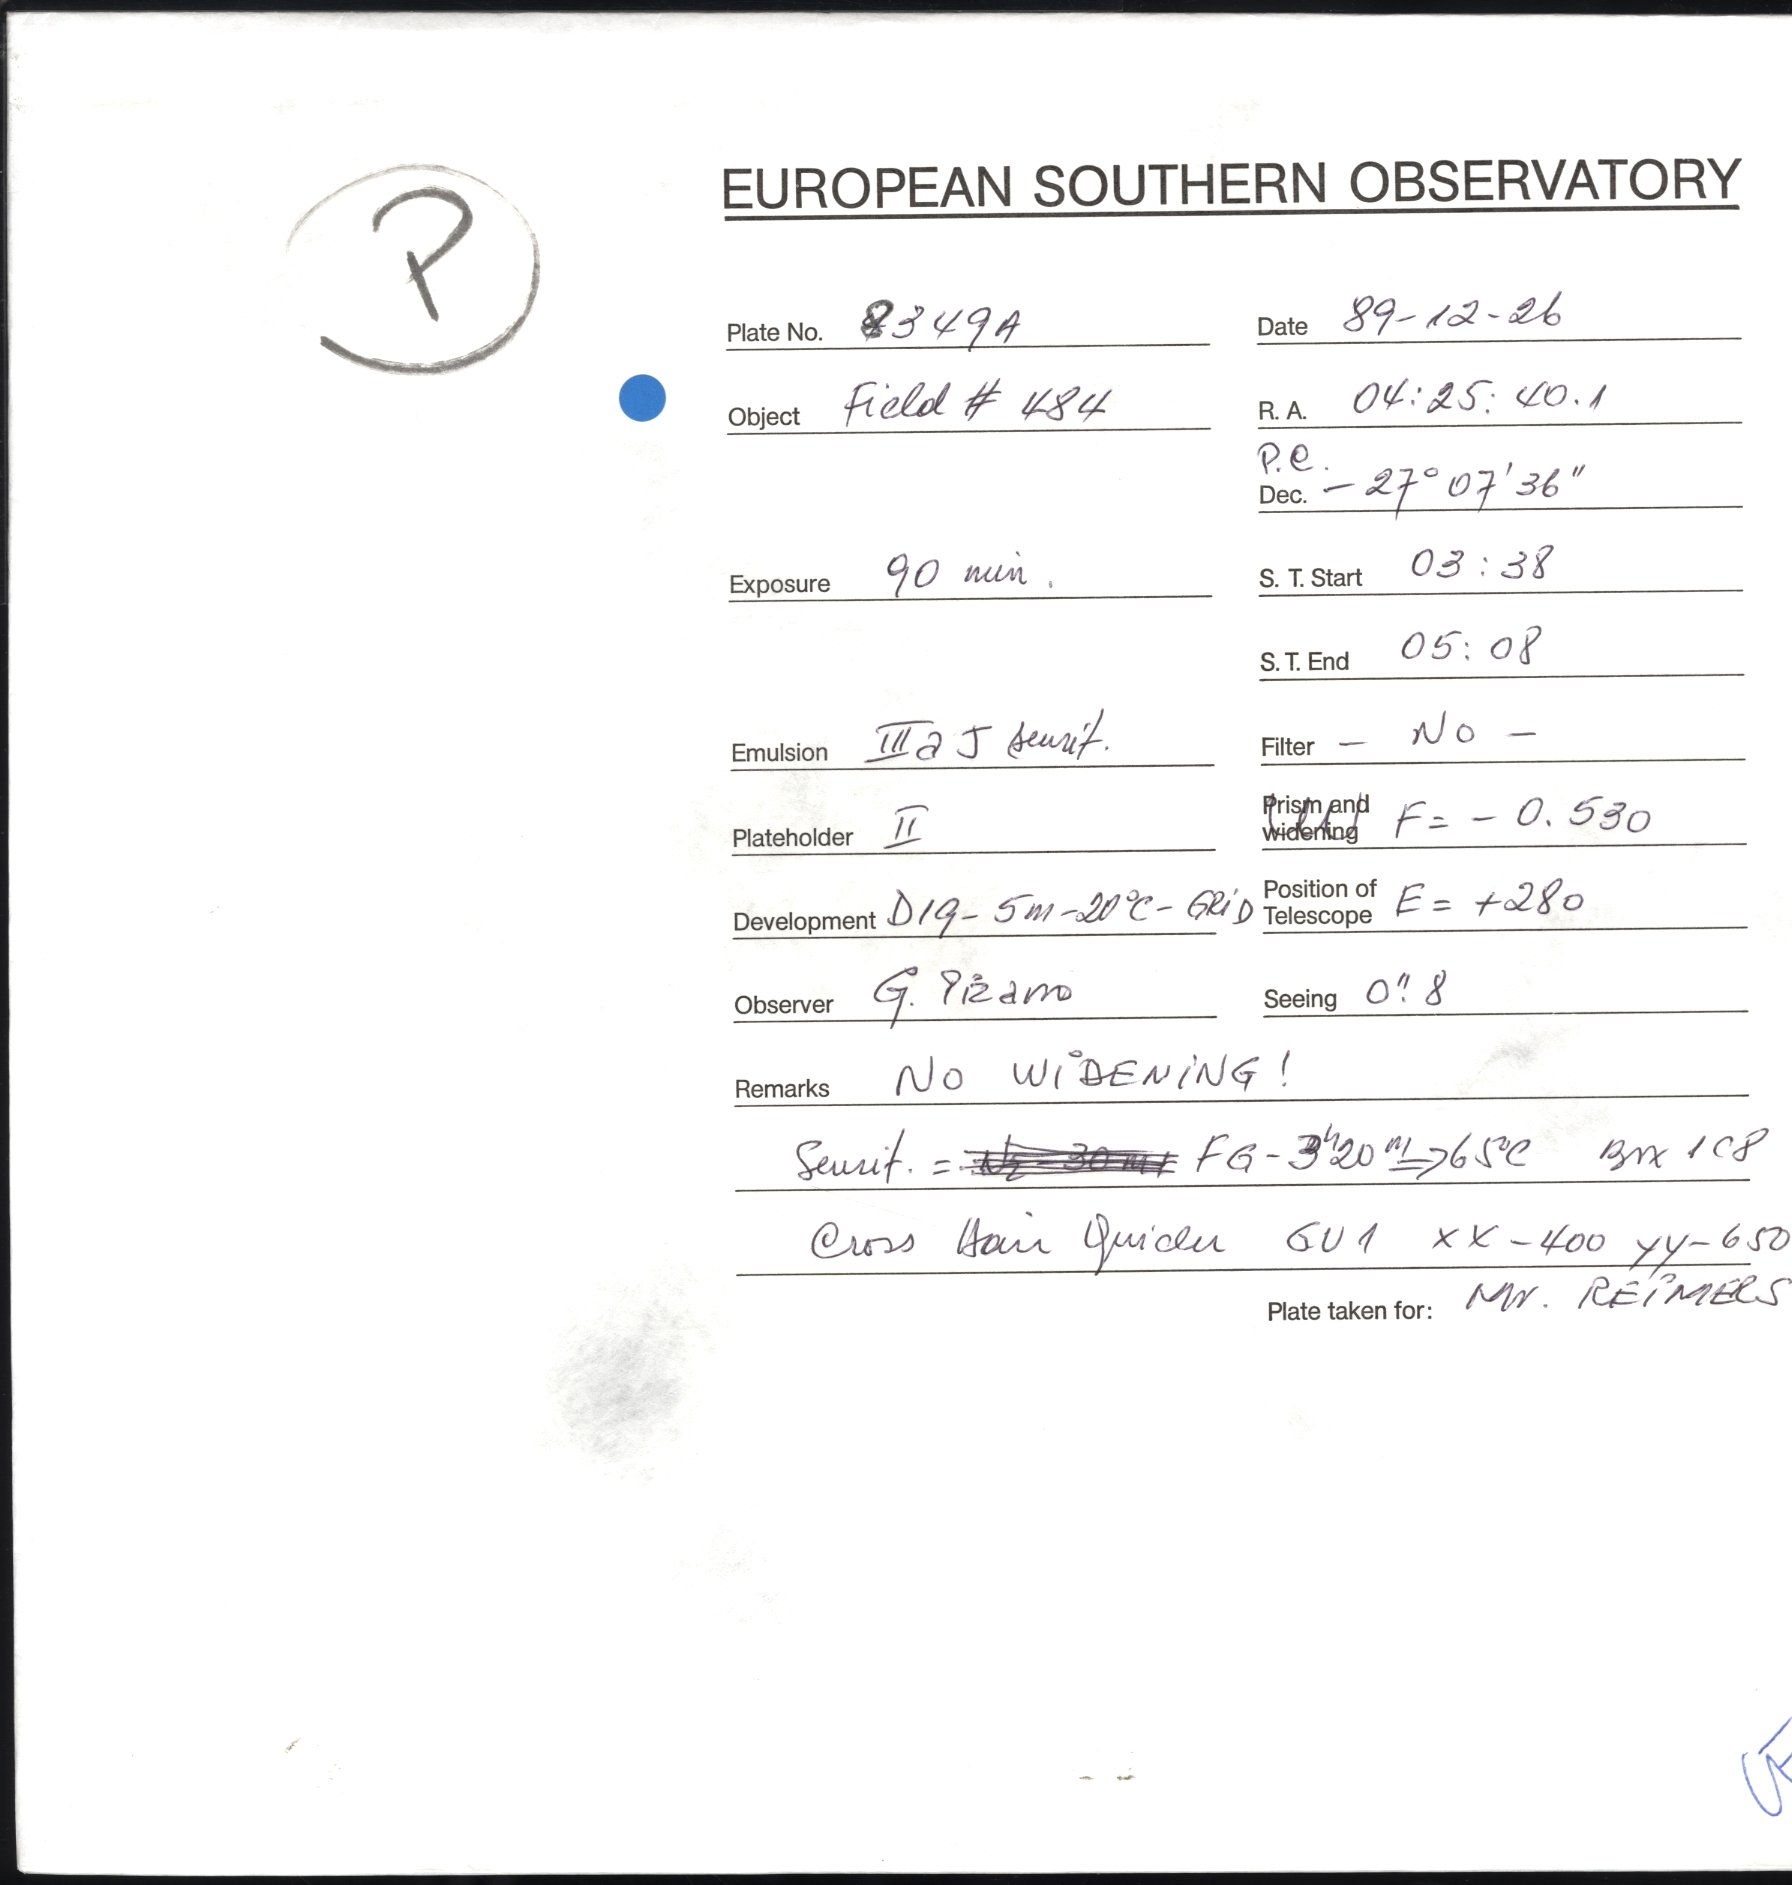 P
EUROPEAN SOUTHERN OBSERVATORY
Plate No. 8349A Date 89-12-26
Object Field # 484 R. A. 04:25:40.1
P.C.
Dec. - 27° 07' 36"
Exposure 90 min. S. T. Start 03:38
S. T. End 05:08
Emulsion IIIaJ sensit. Filter - No -
Plateholder II Prism and widening F = - 0.530
Development D19-5m-20°C-GRiD Position of Telescope E = +280
Observer G. Pizarro Seeing 0".8
Remarks No WiDENiNG!
Sensit. = FG-3h20m=>65°C Box 1C8
Cross Hair Guider GU1 XX-400 yy-650
Plate taken for: Mr. REiMERS